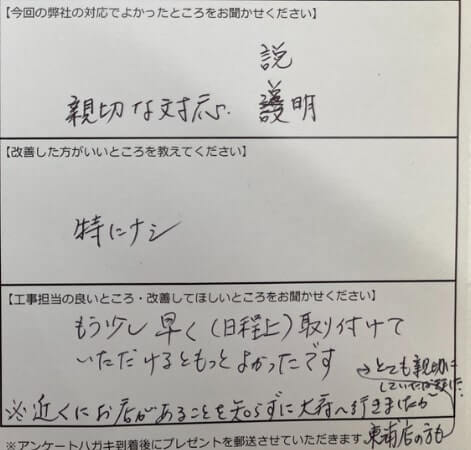 【今回の弊社の対応でよかったところをお聞かせください】
親切な対応. 説明
【改善した方がいいところを教えてください】
特にナシ
【工事担当の良いところ・改善してほしいところをお聞かせください】
もう少し早く(日程上)取り付けて
いただけるともっとよかったです
※近くにお店があることを知らずに大府へ行きましたが
東浦店の方も
→とても親切に
していただきました
※アンケートハガキ到着後にプレゼントを郵送させていただきます。